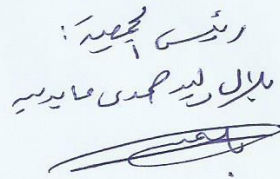 رئيس الجمعية:
بلال وليد حمدي عابدين